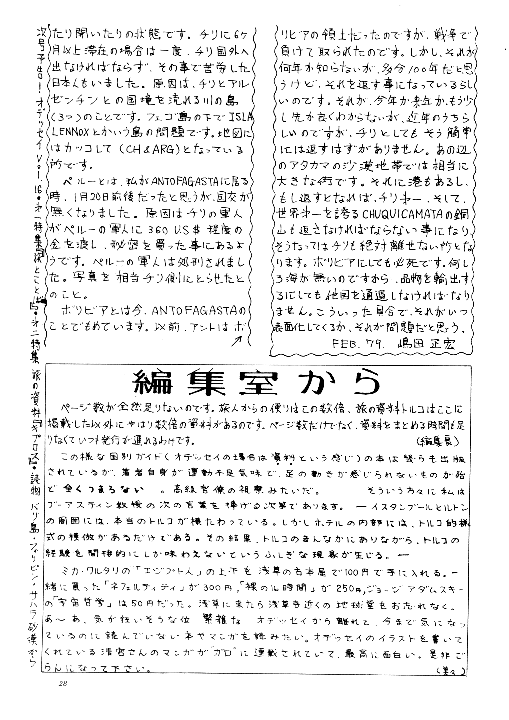 リビアの領土だったのですが、戦争で
負けて取られたのです。しかし、それが
何年か知らないが、多分100年だと思
うけど、それを返す事になっているらし
いのです。それが、今年か来年か、もう少
し先か良くわからないが、近年のうちら
しいのですが、チリとしてもそう簡単
には返すはずがありません。あの辺
のアタカマの沙漠地帯では相当に
大きな街です。それに港もあるし、
もし返すとなれば、チリ一、そして、
世界一を誇るCHUQUICAMATAの銅
山も返さなければならない事になり
そうなってはチリも絶対離せない所とな
ります。ボリビアにしても必死です。何し
ろ海が無いのですから、品物を輸出す
るにしても他国を通過しなければなり
ません。こういった具合で、それがいつ
表面化してくるか、それが問題だと思う。
FEB. '79. 嶋田正宏
たり開いたりの状態です。チリに6ヶ
月以上滞在の場合は一度、チリ国外へ
出なければならず、その事で苦労した
日本人もいました。原因は、チリとアル
ゼンチンとの国境を流れる川の島
(3つ)のことです。フェゴ島の下でISLA
LENNOXとかいう島の問題です。地図に
はカッコして(CH&ARG)となっている
所です。
ペルーとは、私がANTOFAGASTAに居る
時、1月20日前後だったと思うが、国交が
無くなりました。原因はチリの軍人
がペルーの軍人に360US$程度の
金を渡し、秘密を買った事にあるよ
うです。ペルーの軍人は処刑されまし
た。写真を相当チリ側にとらせたと
のこと。
ボリビアとは今、ANTOFAGASTAの
ことでもめています。以前、アントはボ
次号予告!オデッセイVol.16・第一特集
・第二特集 旅の資料
・読物 バリ島・フィリピン・サハラ砂漠から
編集室から
ページ数が全然足りないのです。旅人からの便りはこの数倍、旅の資料トルコはここに
掲載した以外にやはり数倍の資料があるのです。ページ数だけでなく、資料をまとめる時間も足
りなくていつも発行が遅れるわけです。 (編集長)
この様な個別ガイド(オデッセイの場合は資料という感じ)の本は幾らも出版
されているが、著者自身が運動不足気味で、足の動きが感じられないものが殆
で全くつまらない。高級官僚の視察みたいだ。 そういう方々に私は
ブーアスティン教授の次の言葉を捧げる次第であります。 ―イスタンブールヒルトン
の周囲には、本当のトルコが横たわっている。しかしホテルの内部には、トルコ的様
式の模倣があるだけである。その結果、トルコのまんなかにありながら、トルコの
経験を間接的にしか味わえないというふしぎな現象が生じる。―
ミカ・ワルタリの「エジプト人」の上下を浅草の古本屋で100円で手に入れる。一
緒に買った「ネフェルティティ」が300円、「裸の十時間」が250円、ジョージ・アダムスキー
の「宇宙哲学」は50円だった。浅草に来たら浅草寺近くの地球堂をお忘れなく。
あ〜あ、気が狂いそうな位 繁雑な オデッセイから離れて、今まで気になっ
ているのに読んでいない本やマンガを読みたい。オデッセイのイラストを書いて
くれている さんのマンガが"ガロ"に連載されていて、最高に面白い。是非ご
らんになって下さい。
28